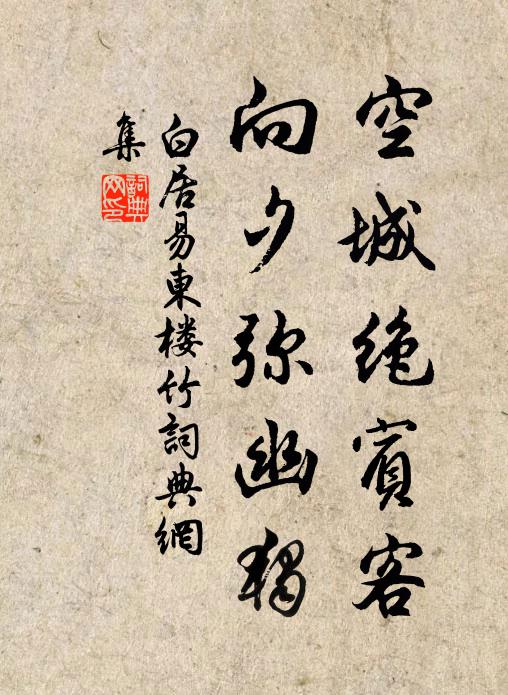 空城绝賓客
向夕弥幽独
白居易東楼竹詞典網
集
詞典
网印